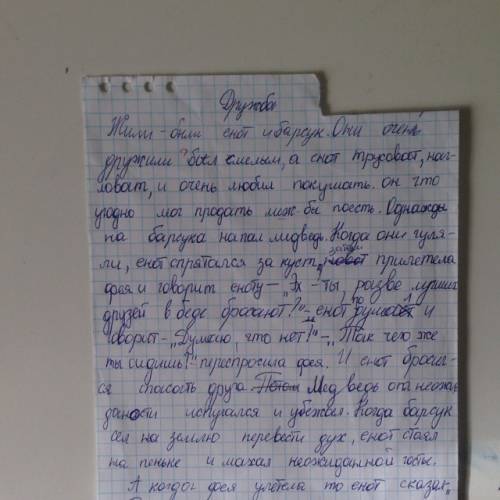 Дружба
Жили-были енот и барсук. Они очень
дружили ? был смелым, а енот трусоват, наг-
ловат, и очень любил покушать. он что
угодно мог продать лиж бы поесть. Однажды
на барсука напал медведь. Когда они гуля-
ли, енот спрятался за куст, затем прилетела
фея и говорит еноту - „Эх - ты, разве лучших
друзей в беде бросают?" - енот думает и
говорит - „Думаю, что нет!" - „Так чего же
ты сидишь?" переспросила фея. И енот бросил-
ся спасать друга. Потом Медведь от неожи
даности испугался и убежал. Когда барсук
сел на землю перевести дух, енот стоял
на пеньке и махал неожиданной гостье.
А когда фея улетела то енот сказал,